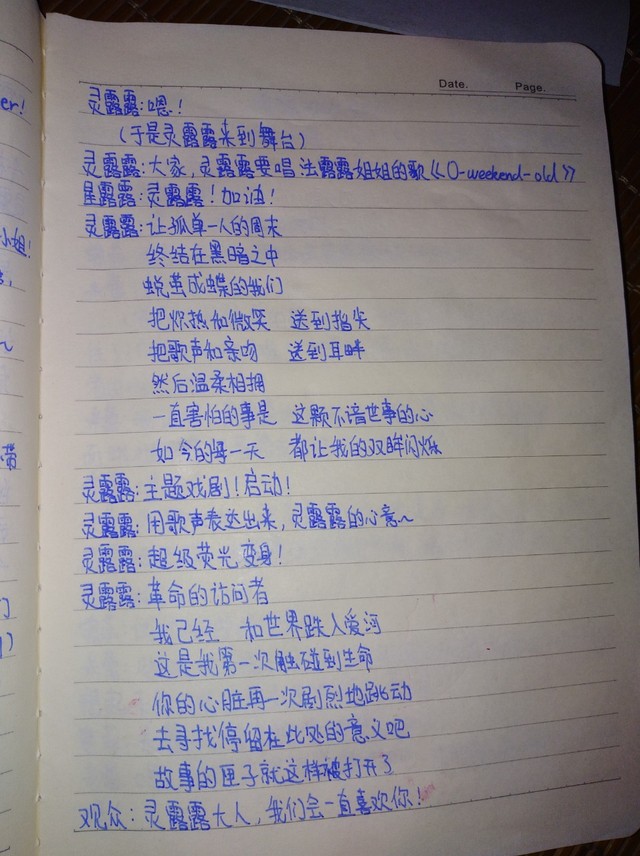 Date. Page.
灵露露:嗯!
(于是灵露露来到舞台)
灵露露:大家,灵露露要唱法露露姐姐的歌《0-weekend-old》
星露露:灵露露!加油!
灵露露:让孤单一人的周末
终结在黑暗之中
蜕茧成蝶的我们
把炽热和微笑 送到指尖
把歌声和亲吻 送到耳畔
然后温柔相拥
一直害怕的事是 这颗不谙世事的心
如今的每一天 都让我的双眸闪烁
灵露露:主题戏剧!启动!
灵露露:用歌声表达出来,灵露露的心意~
灵露露:超级荧光变身!
灵露露:革命的访问者
我已经 和世界跌入爱河
这是我第一次触碰到生命
你的心脏再一次剧烈地跳动
去寻找停留在此处的意义吧
故事的匣子就这样被打开了
观众:灵露露大人,我们会一直喜欢你!
er!
小姐!
~
带